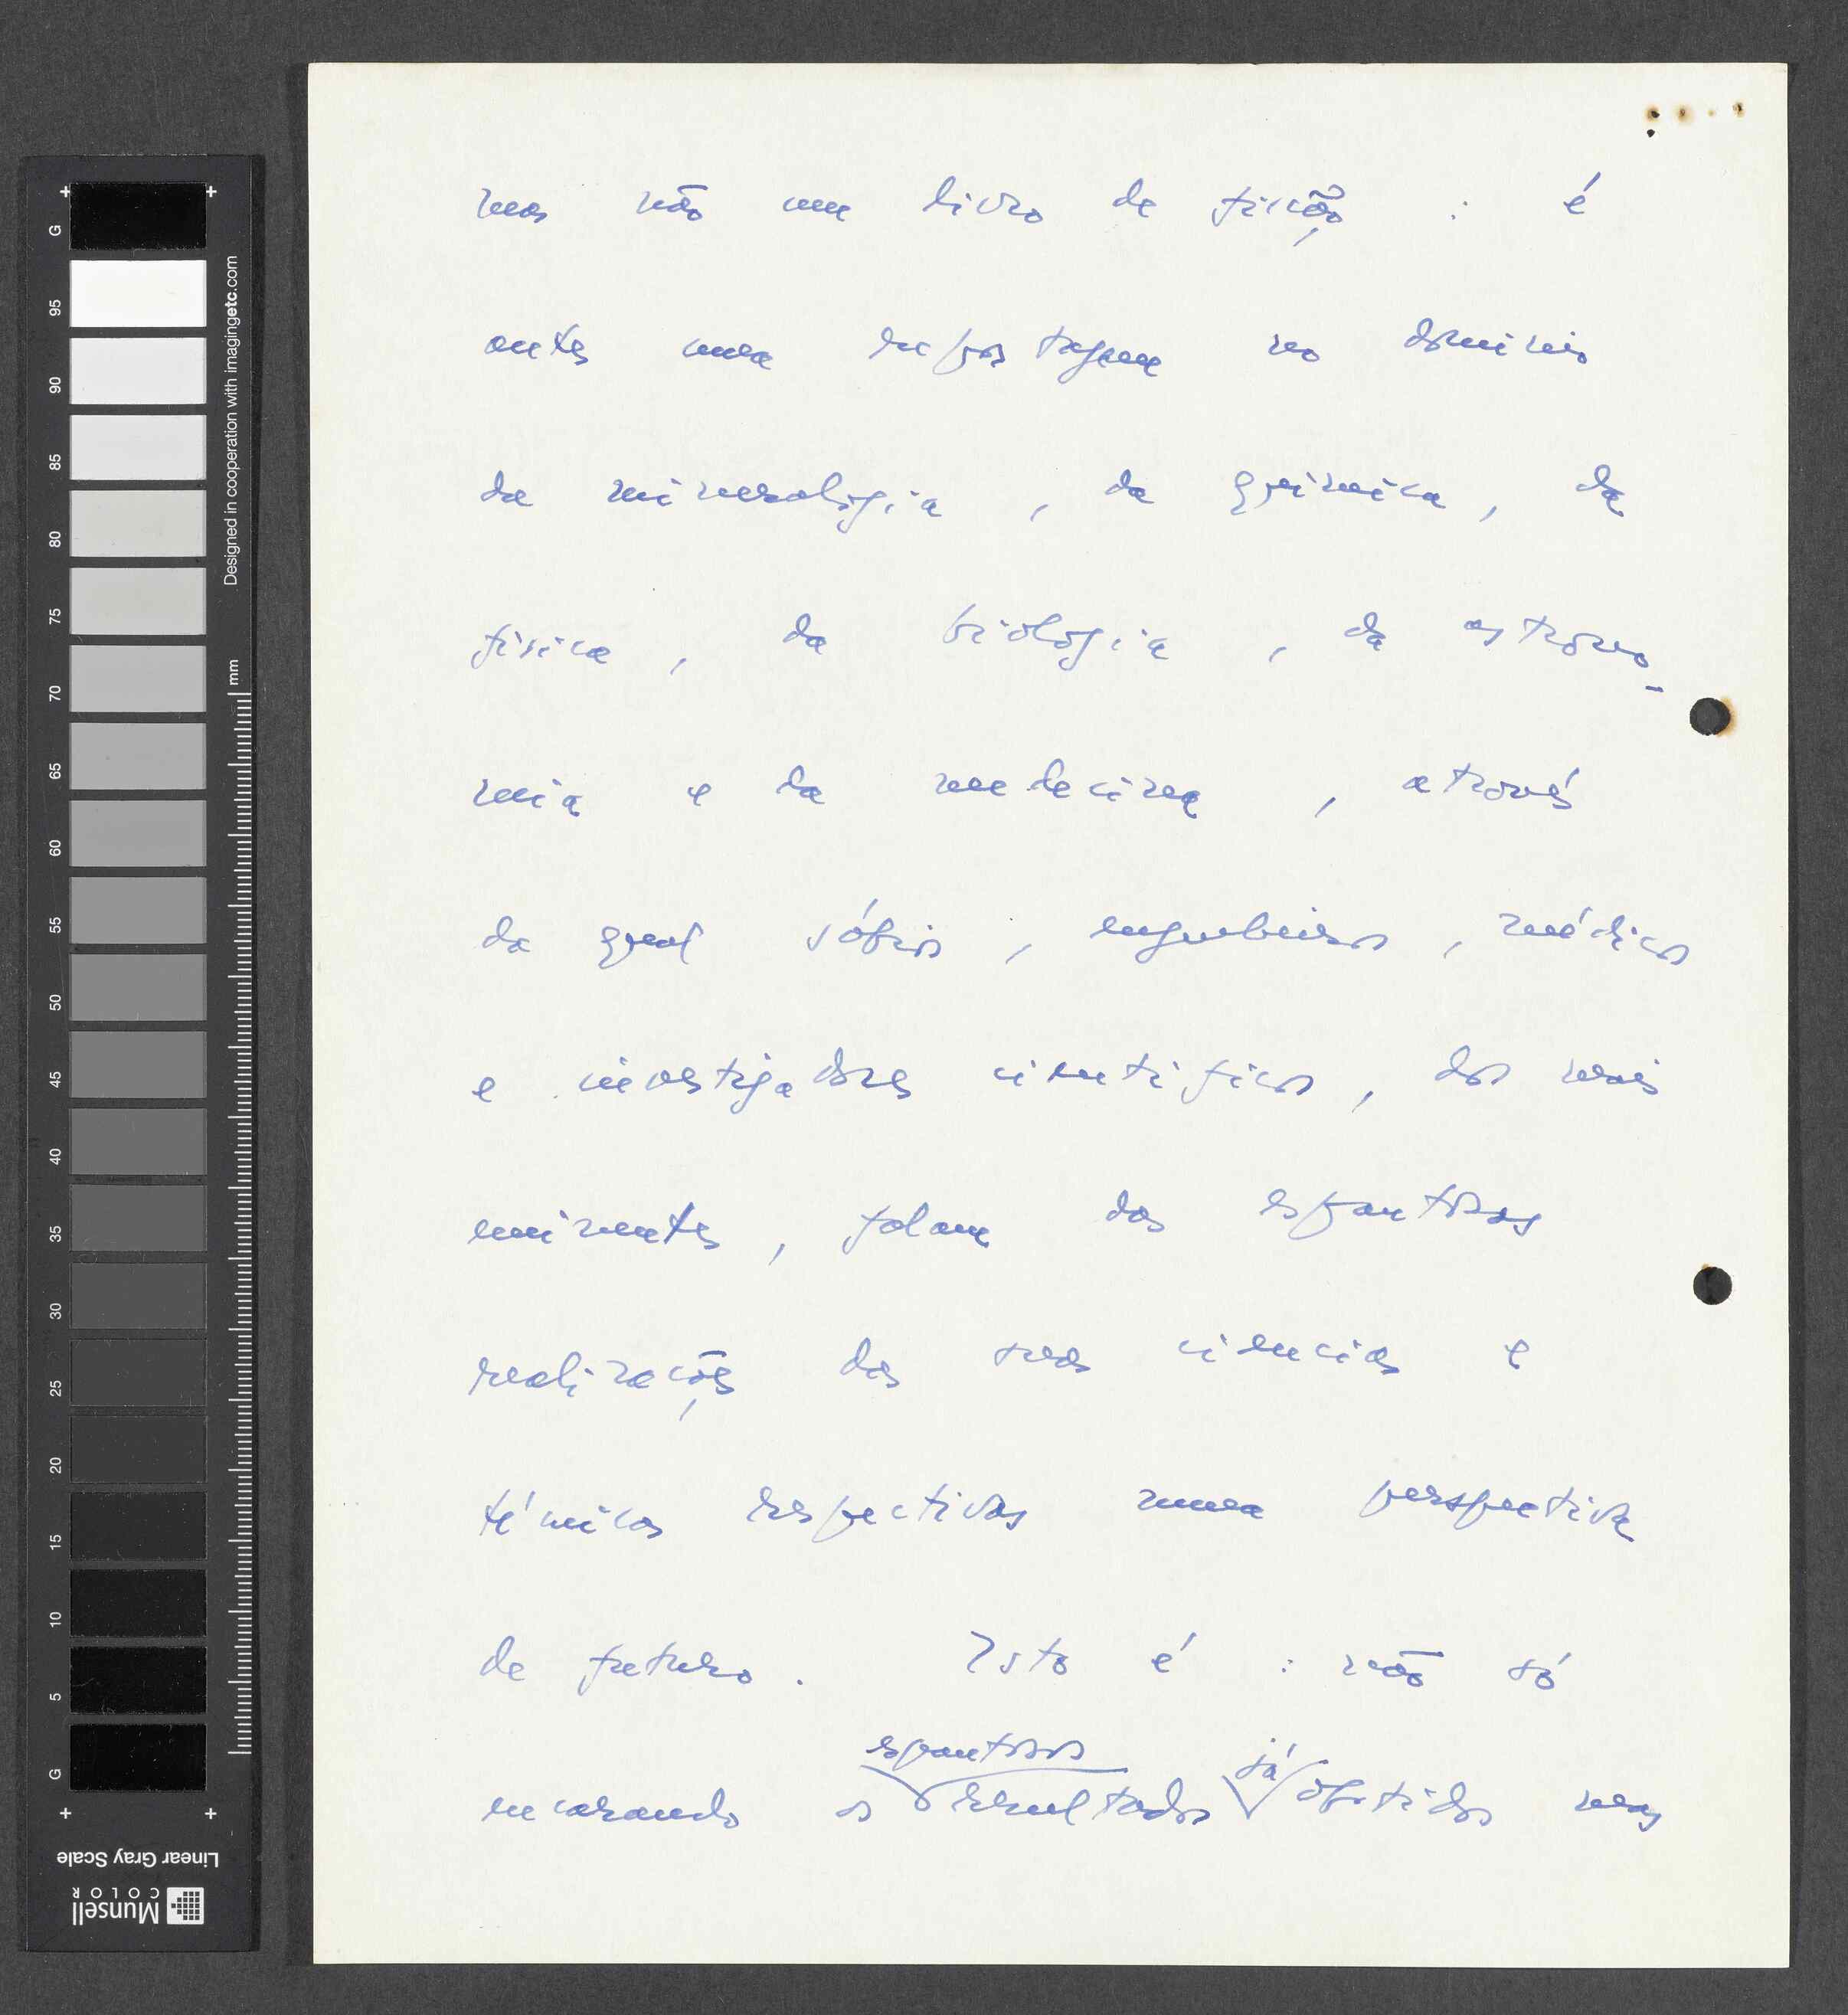 mas não um livro de ficção : é
antes uma reportagem no dominio
da mineralogia , da quimica , da
fisica , da biologia , da astrono-
mia e da medecina , através
da qual sábios , engenheiros , médicos
e investigadores cientificos , dos mais
eminentes , falam das espantosas
realizações das suas ciencias e
técnicas respectivas numa perspectiva
de futuro . Isto é : não só
espantosos já
encarando os resultados obtidos mas
G 95 90 85 80 75 70 65 60 55 50 45 40 35 30 25 20 15 10 5 G
Designed in cooperation with imagingetc.com
mm
Linear Gray Scale
Munsell
COLOR